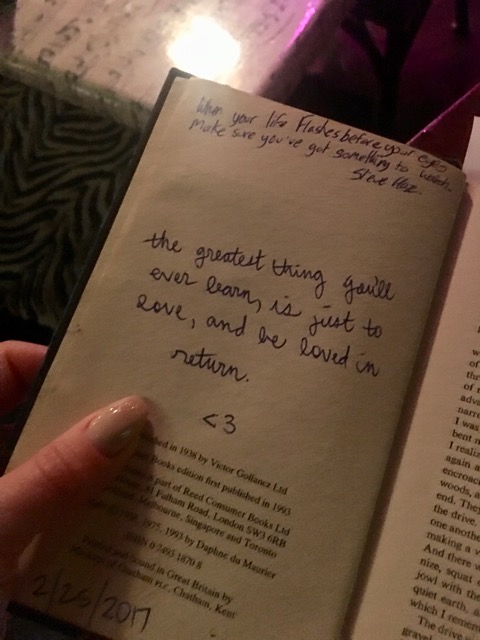 When your life Flashes before your eyes
make sure you've got something to watch.
Steve
the greatest thing you'll
ever learn, is just to
love, and be loved in
return.
<3
in 1938 by Victor Gollancz Ltd
Books edition first published in 1993
part of Reed Consumer Books Ltd
Fulham Road, London SW3 6RB
Melbourne, Singapore and Toronto
1975, 1993 by Daphne du Maurier
ISBN 0
and bound in Great Britain by
of Chatham PLC, Chatham, Kent
2/25/2017
w
of
th
of
adva
narr
I was
bent
I realiz
again a
encroac
woods, a
end. They
the drive.
one anothe
making a v
And there w
nize, squat
jowl with the
quiet earth, a
which I remem
The drive
grave